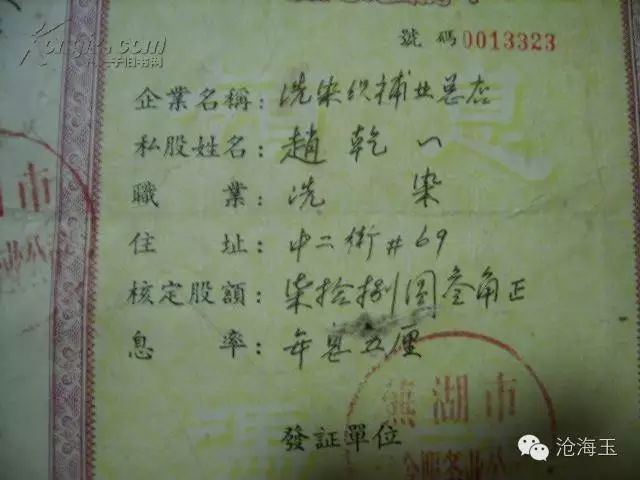 Kongfz.com
孔夫子旧书网
號碼0013323
企業名稱:洗染织補业总店
私股姓名:趙乾一
職業:洗染
住址:中二街#69
核定股額:柒拾捌圆叁角正
息率:年息五厘
蕪湖市
發証單位
沧海玉